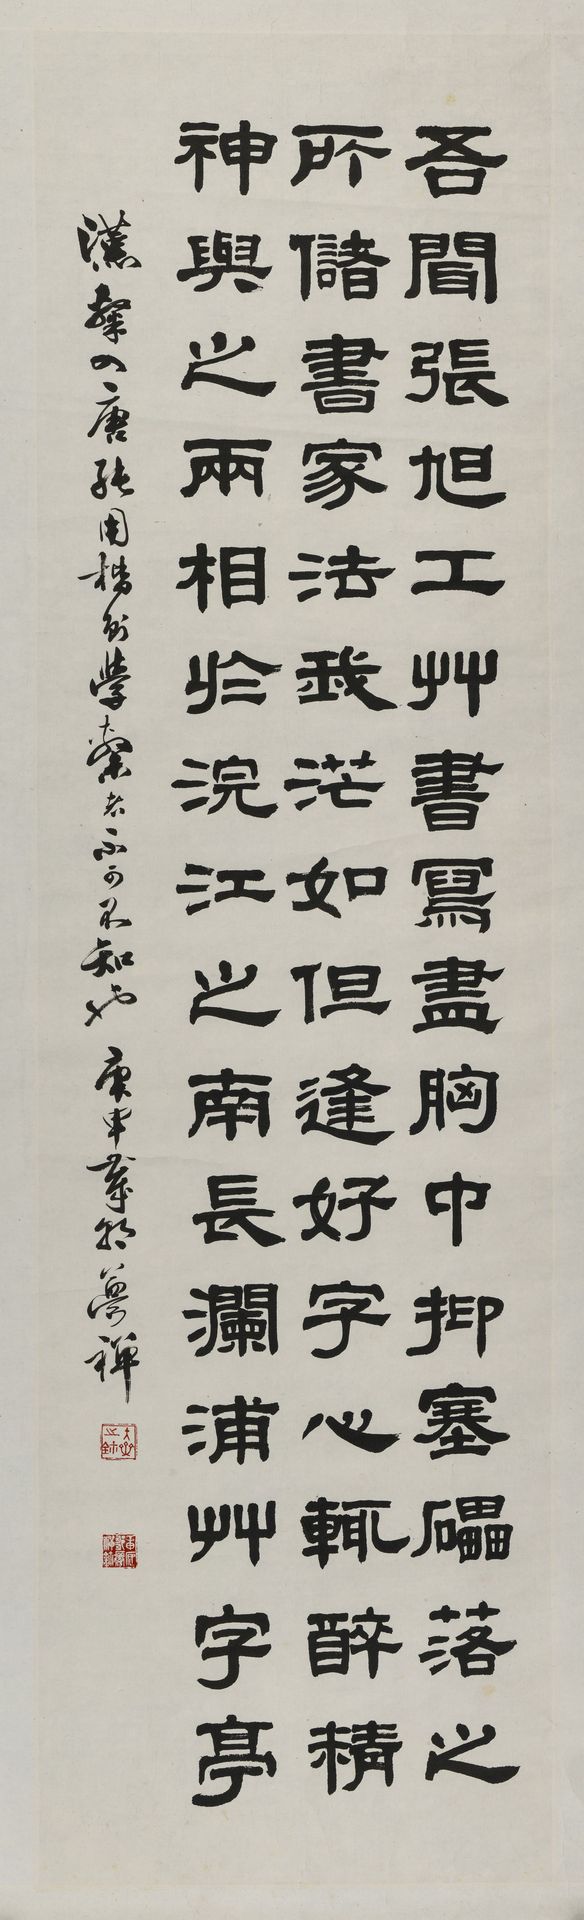 吾聞張旭工艸書寫盡胸中抑塞礧落之
所儲書家法我茫如但逢好字心輒醉精
神與之兩相於浣江之南長瀾浦艸字亭
漢隸四唐純用楷則學隸者不可不知也 庚申歲朝 夢禪